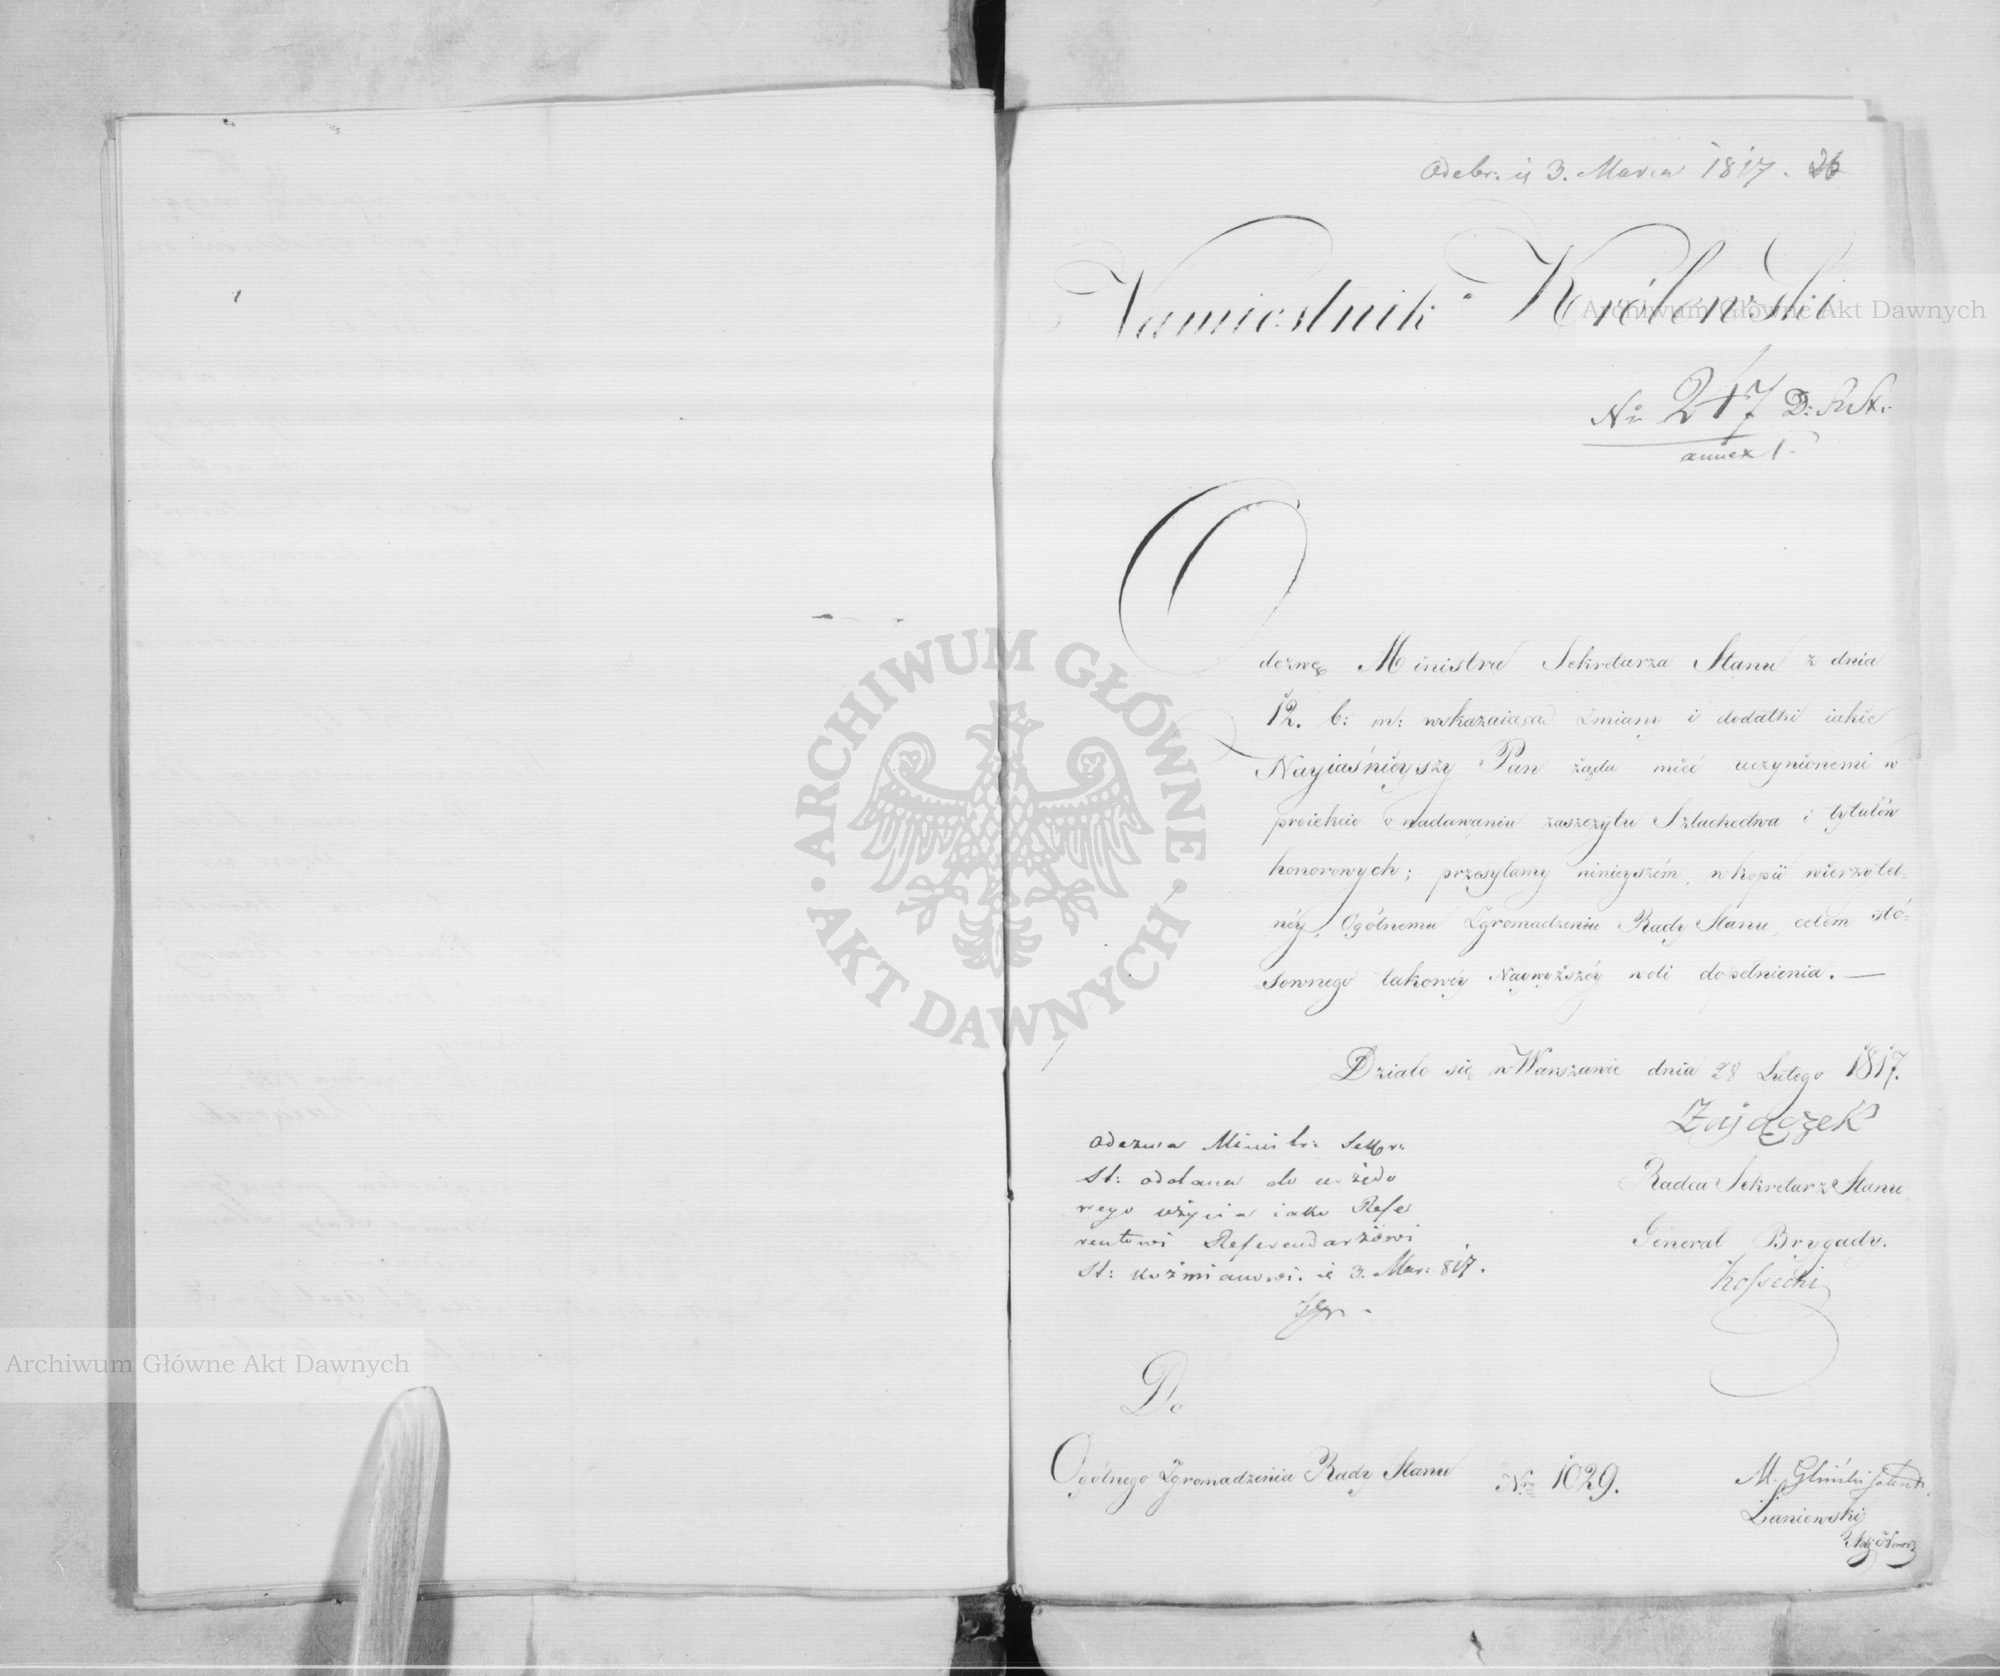 Odebr: d 3. Marca 1817. 26
Namiestnik Królewski
Nr 247 D: R. St.
annex 1.
Odezwę Ministra Sekretarza Stanu z dnia
12. b: m: wskazaiącą zmiany i dodatki iakie
Nayiaśnieyszy Pan żąda mieć uczynionemi w
proiekcie o nadawaniu zaszczytu Szlachectwa i tytułów
honorowych; przesyłamy ninieyszém, w kopii wierzytel=
néy, Ogólnemu Zgromadzeniu Rady Stanu, celem stó=
sownego takowéy Naywyższéy woli dopełnienia. —
Działo się w Warszawie dnia 28 Lutego 1817.
Zajączek
Odezwa Minis tr: Sekr:
St: oddana do urzędo
wego użycia iako Refe
rentowi Referendarzowi
St: Koźmianowi. d 3. Mar: 817.
Radca Sekretarz Stanu
Generał Brygady.
Kossecki
Do
Ogólnego Zgromadzenia Rady Stanu
Nro 1029.
M. Gliński
Łaniewski
Archiwum Główne Akt Dawnych
Archiwum Główne Akt Dawnych
ARCHIWUM GŁÓWNE • AKT DAWNYCH •